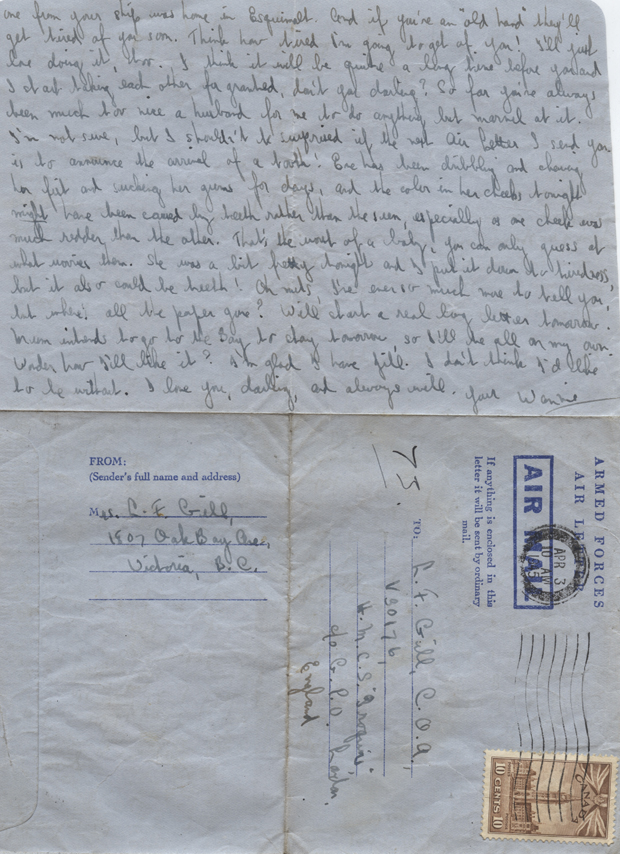 one from your ship was home in Esquimalt. And if you're an "old hand" they'll
get tired of you soon. Think how tired I'm going to get of you! I'll just
love doing it, too. I think it will be quite a long time before you and
I start taking each other for granted, don't you darling? So far you've always
been much too nice a husband for me to do anything but marvel at it.
I'm not sure, but I shouldn't be surprised if the next Air Letter I send you
is to announce the arrival of a tooth! has been dribbling and chewing
her fist and sucking her gums for days, and the color in her cheeks tonight
might have been caused by teeth rather than the sun, especially as one cheek was
much redder than the other. That's the worst of a baby, you can only guess at
what worries them. She was a bit fretty tonight and I put it down to tiredness,
but it also could be teeth! Oh nuts, I've ever so much more to tell you,
but where's all the paper gone? Will start a real long letter tomorrow.
Mum intends to go to the Bay to stay tomorrow, so I'll be all on my own.
Wonder how I'll like it? I'm glad I have Jill. I don't think I'd like
to be without. I love you, darling, and always will. Your
FROM:
(Sender's full name and address)
Mrs. L. F. Gill,
1907 Oak Bay Ave.,
Victoria, B.C.
ARMED FORCES
AIR LETTER
AIR MAIL
APR 3
10 AM
If anything is enclosed in this
letter it will be sent by ordinary
mail.
73.
TO:
L. F. Gill, C.O.A.,
V90176,
H.M.C.S.
c/o G.P.O. London,
England
CANADA
10 CENTS 10